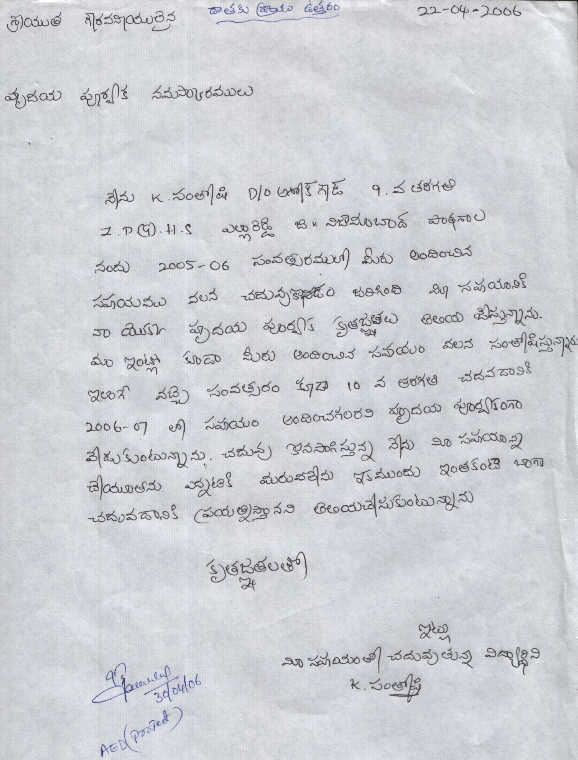 దాతకు వ్రాయు ఉత్తరం
22-04-2006
శ్రీయుత గౌరవనీయులైన
హృదయ పూర్వక నమస్కారములు
నేను K. సంతోషి D/O అశోక్ గౌడ్ 9.వ తరగతి
Z.P(G).H.S ఎల్లారెడ్డి జి॥ నిజామాబాద్ పాఠశాల
నందు 2005-06 సంవత్సరములో మీరు అందించిన
సహాయము వలన చదువుకొనడం జరిగింది మీ సహాయానికి
నా యొక్క హృదయ పూర్వక కృతజ్ఞతలు తెలియ చేస్తున్నాను.
మా ఇంట్లో కూడా మీరు అందించిన సహాయం వలన సంతోషిస్తున్నారు
ఇలాగే వచ్చే సంవత్సరం కూడా 10 వ తరగతి చదవడానికి
2006-07 లో సహాయం అందించగలరని హృదయ పూర్వకంగా
వేడుకుంటున్నాను. చదువు కొనసాగిస్తున్న నేను మీ సహాయాన్ని
చేయూతను ఎన్నటికి మరువలేను ఇకముందు ఇంతకంటే బాగా
చదువడానికి ప్రయత్నిస్తానని తెలియచేసుకుంటున్నాను
కృతజ్ఞతలతో
ఇట్లు
మీ సహాయంతో చదువుతున్న విద్యార్థిని
K. సంతోషి
30/04/06
AED (Project)